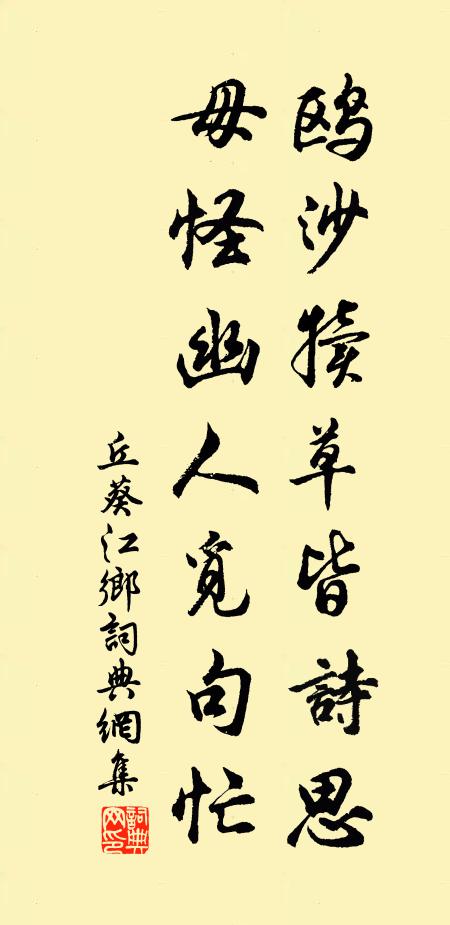 鸥沙犊草皆詩思
毋怪幽人觅句忙
丘葵江鄉詞典網集
詞典网印